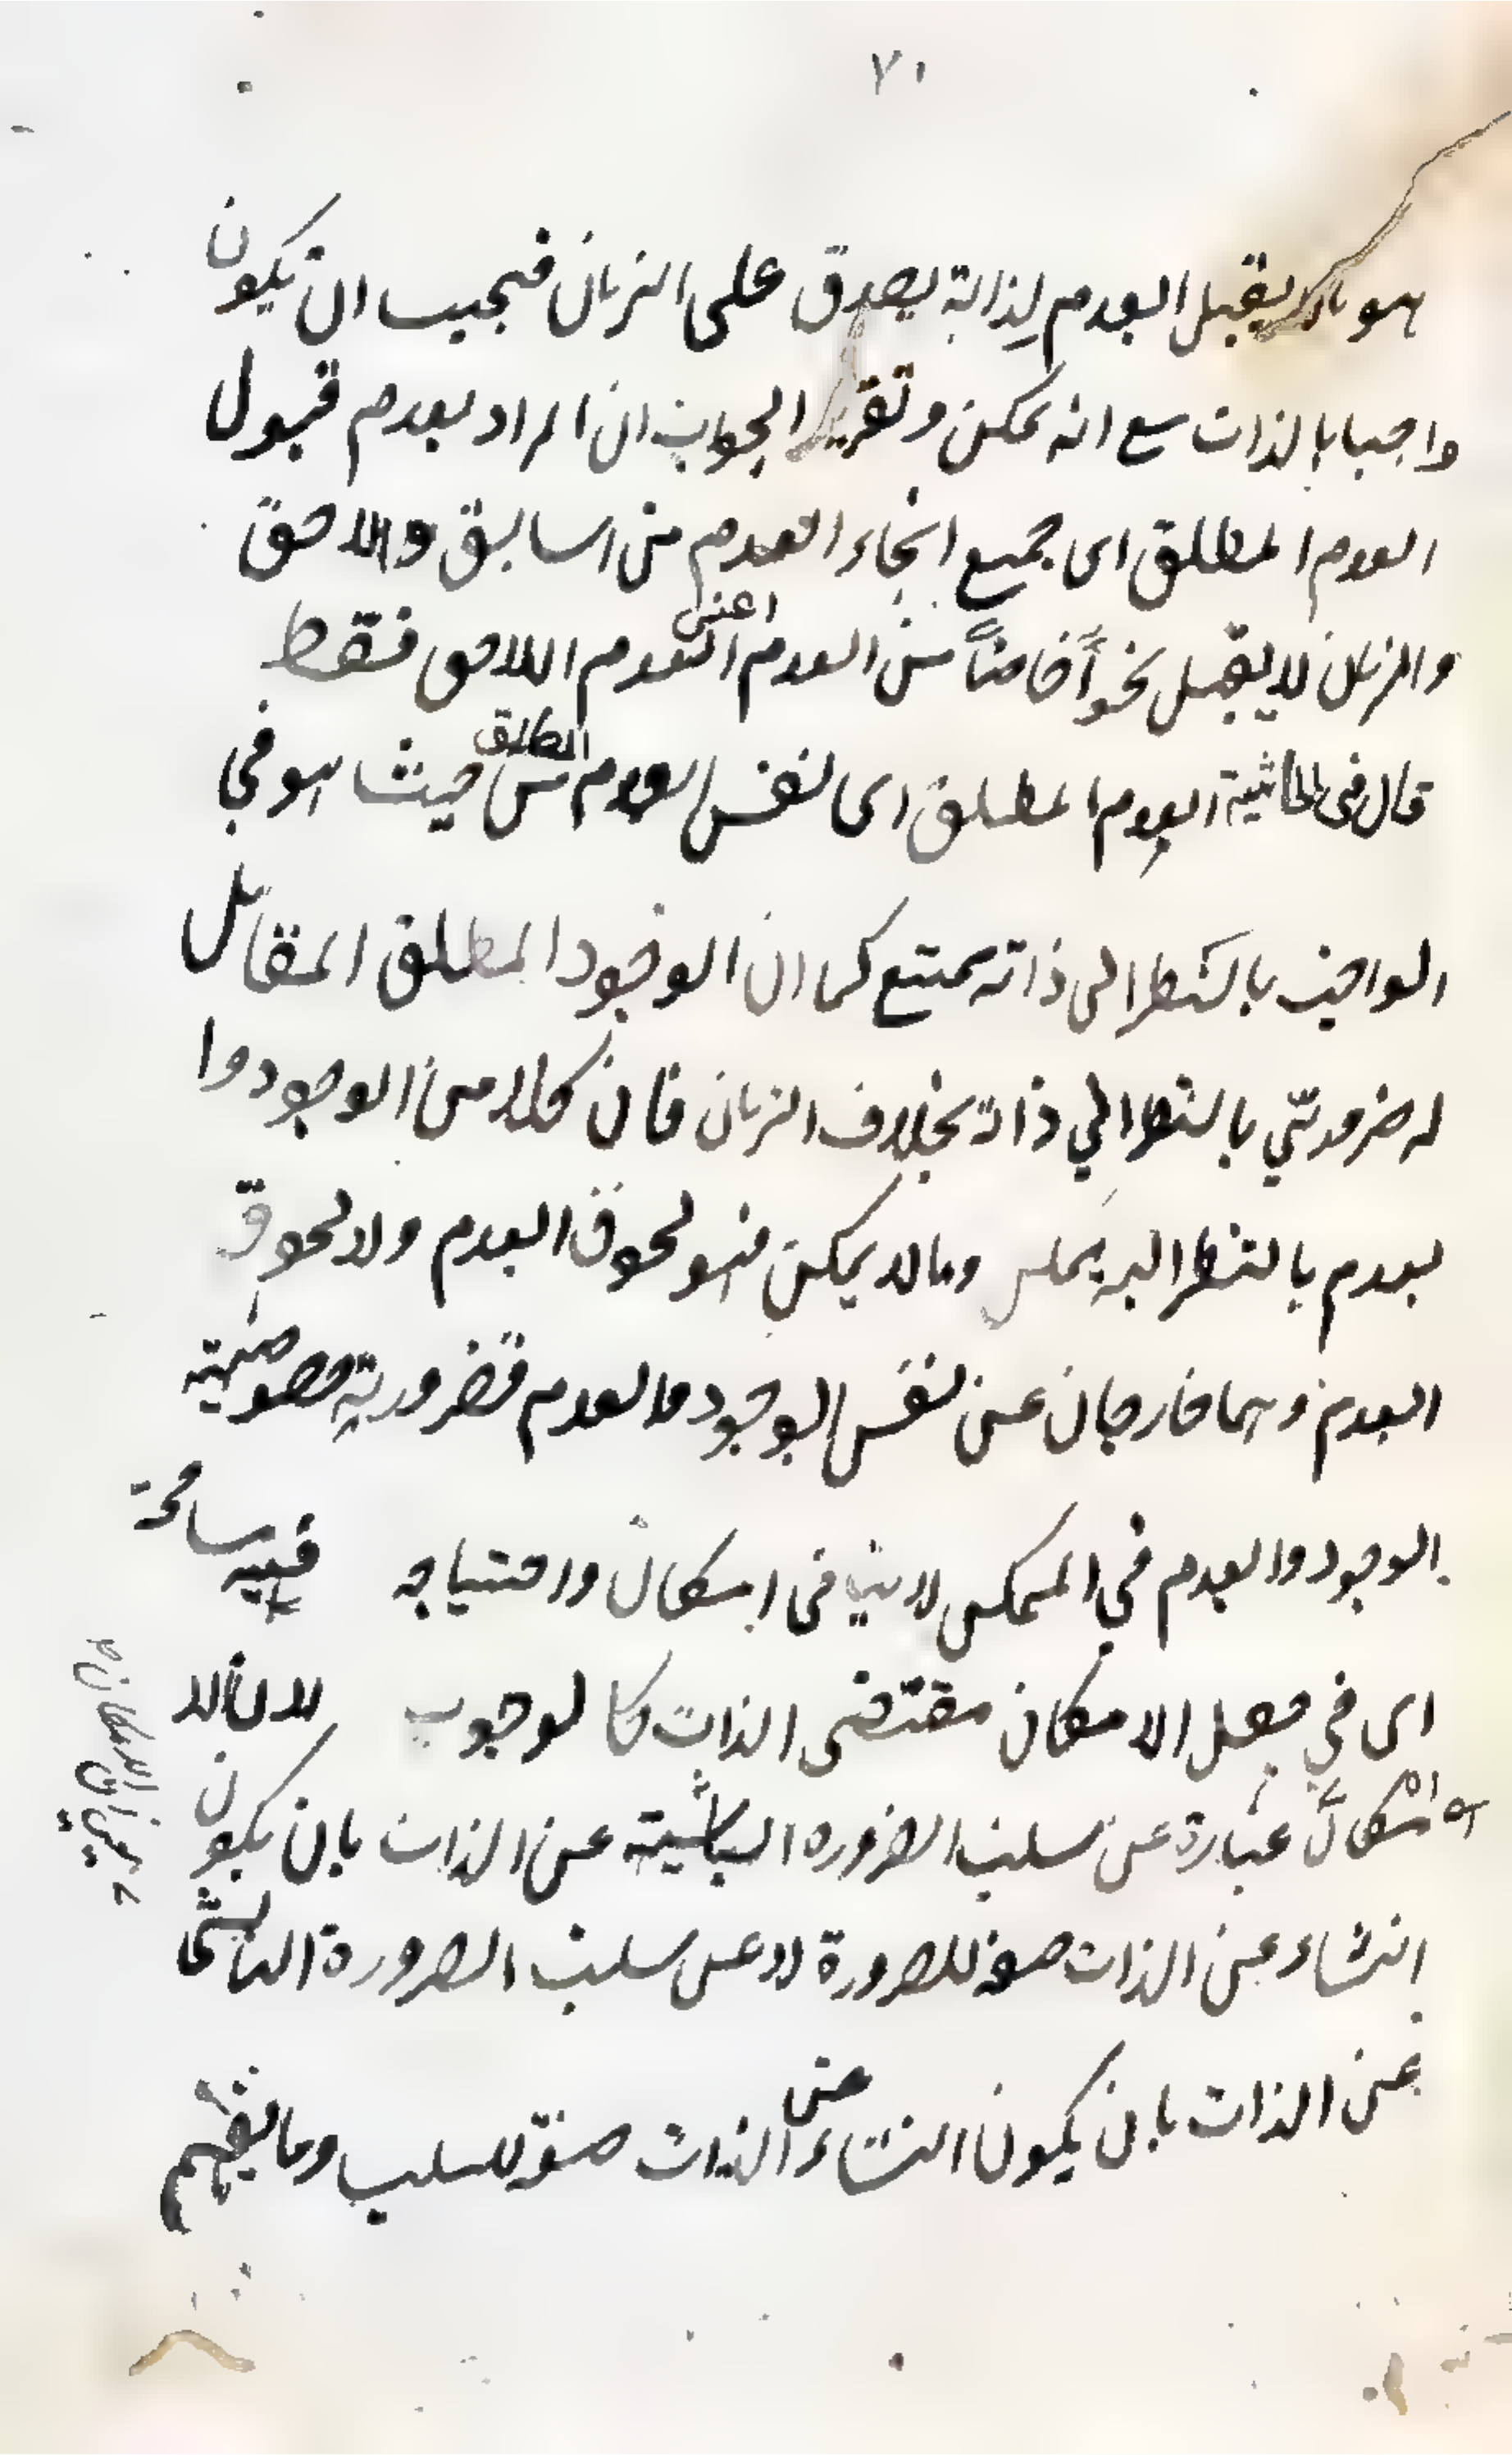 ٧١
هو ما لا يقبل العدم لذاته يصدق على الزمان فيجب ان يكون
واجبا بالذات مع انه ممكن وتقرير الجواب ان المراد بعدم قبول
العدم المطلق اى جميع انحاء العدم من السابق واللاحق
والزمان لا يقبل نحواً خاصاً من العدم اعنى العدم اللاحق فقط
قال فى الحاشية العدم المطلق اى نفس العدم المطلق من حيث هو في
الواجب بالنظر الى ذاته ممتنع كما ان الوجود المطلق المقابل
له ضرورىّ بالنظر الي ذاته بخلاف الزمان فان كلا من الوجود وا
لعدم بالنظر اليه يمكن وما لا يمكن فهو لحوق العدم ولا لحوق
العدم وهما خارجان عن نفس الوجود والعدم فضرورية خصوصية
الوجود والعدم في الممكن لا ينافى امكانه واحتياجه فيه مسامحة
اى في جعل الامكان مقتضى الذات كالوجوب لان الا
مكان عبارة عن سلب الضرورة الناشية عن الذات بان يكون
انشاء عن الذات صفة للضرورة لا عن سلب الضرورة الناشئ
عن الذات بان يكون النشاء عن الذات صفة للسلب وما يفهم